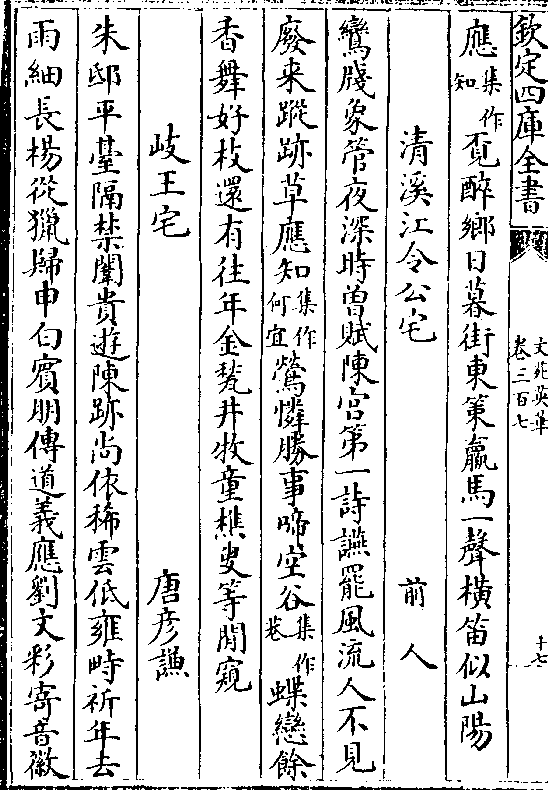 欽定四庫全書
文苑英華
卷三百七
十七
應集作知覔醉鄉日暮街東策羸馬一聲橫笛似山陽
清溪江令公宅 前人
鸞牋象管夜深時曾賦陳宫第一詩讌罷風流人不見
廢來蹤跡草應知集作何宜鶯憐勝事啼空谷集作巷蝶戀餘
香舞好枝還有往年金甃井牧童樵叟等閒窺
歧王宅 唐彦謙
朱邸平臺隔禁闈貴遊陳跡尚依稀雲低雍畤祈年去
雨細長楊從獵歸申白賓朋傳道義應劉文彩寄音徽